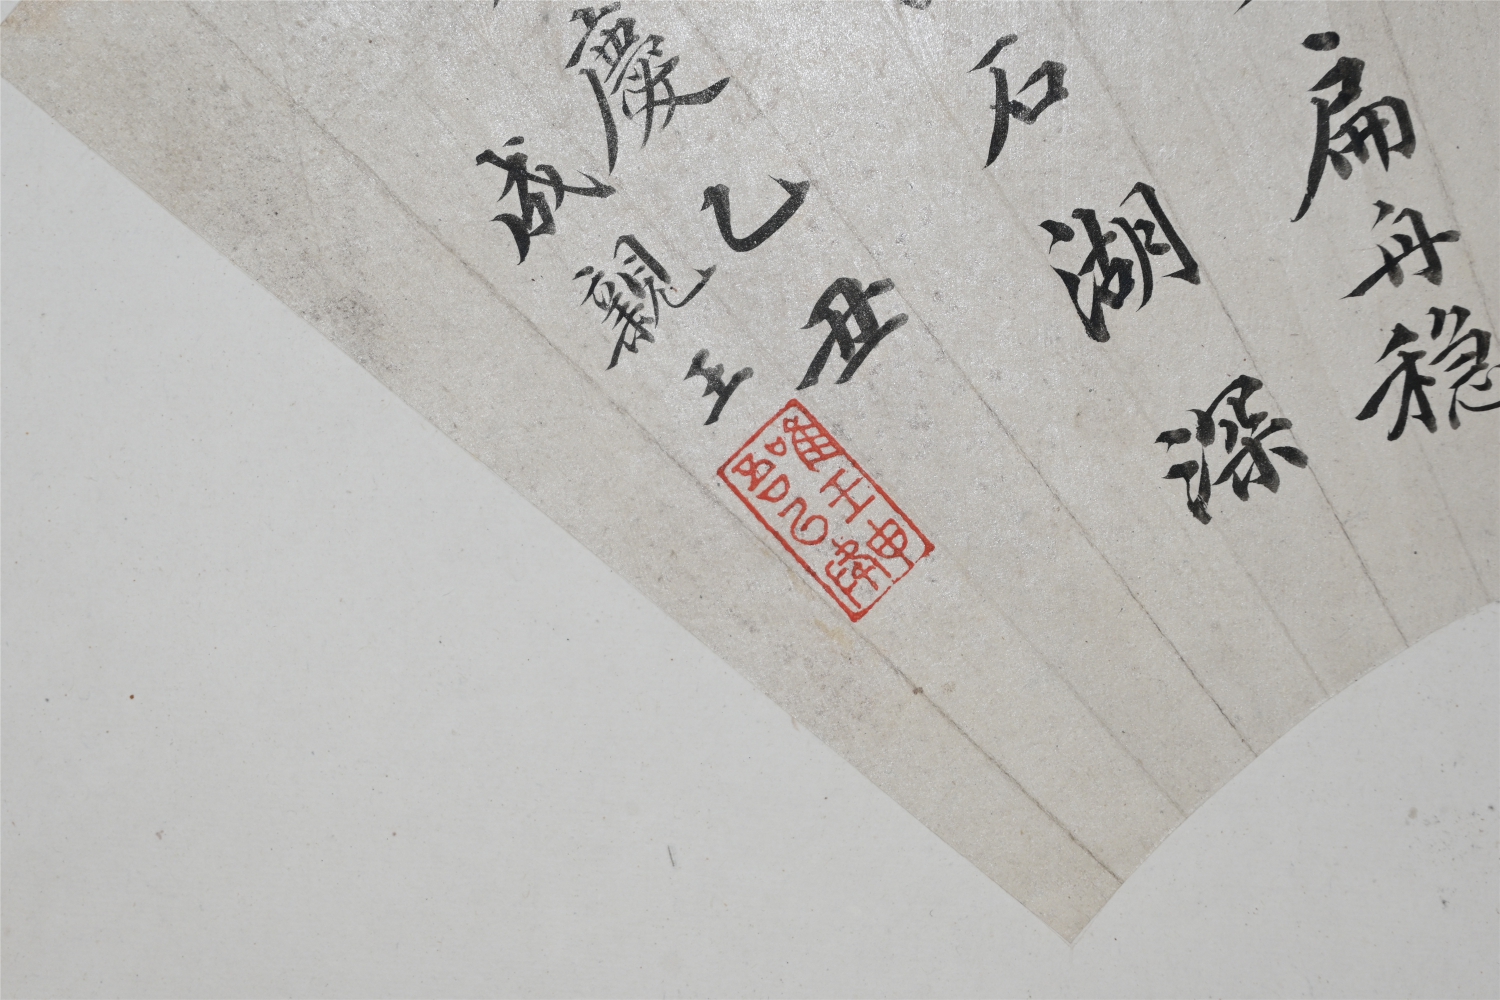 扁舟穩
石湖深
慶乙丑
成親王